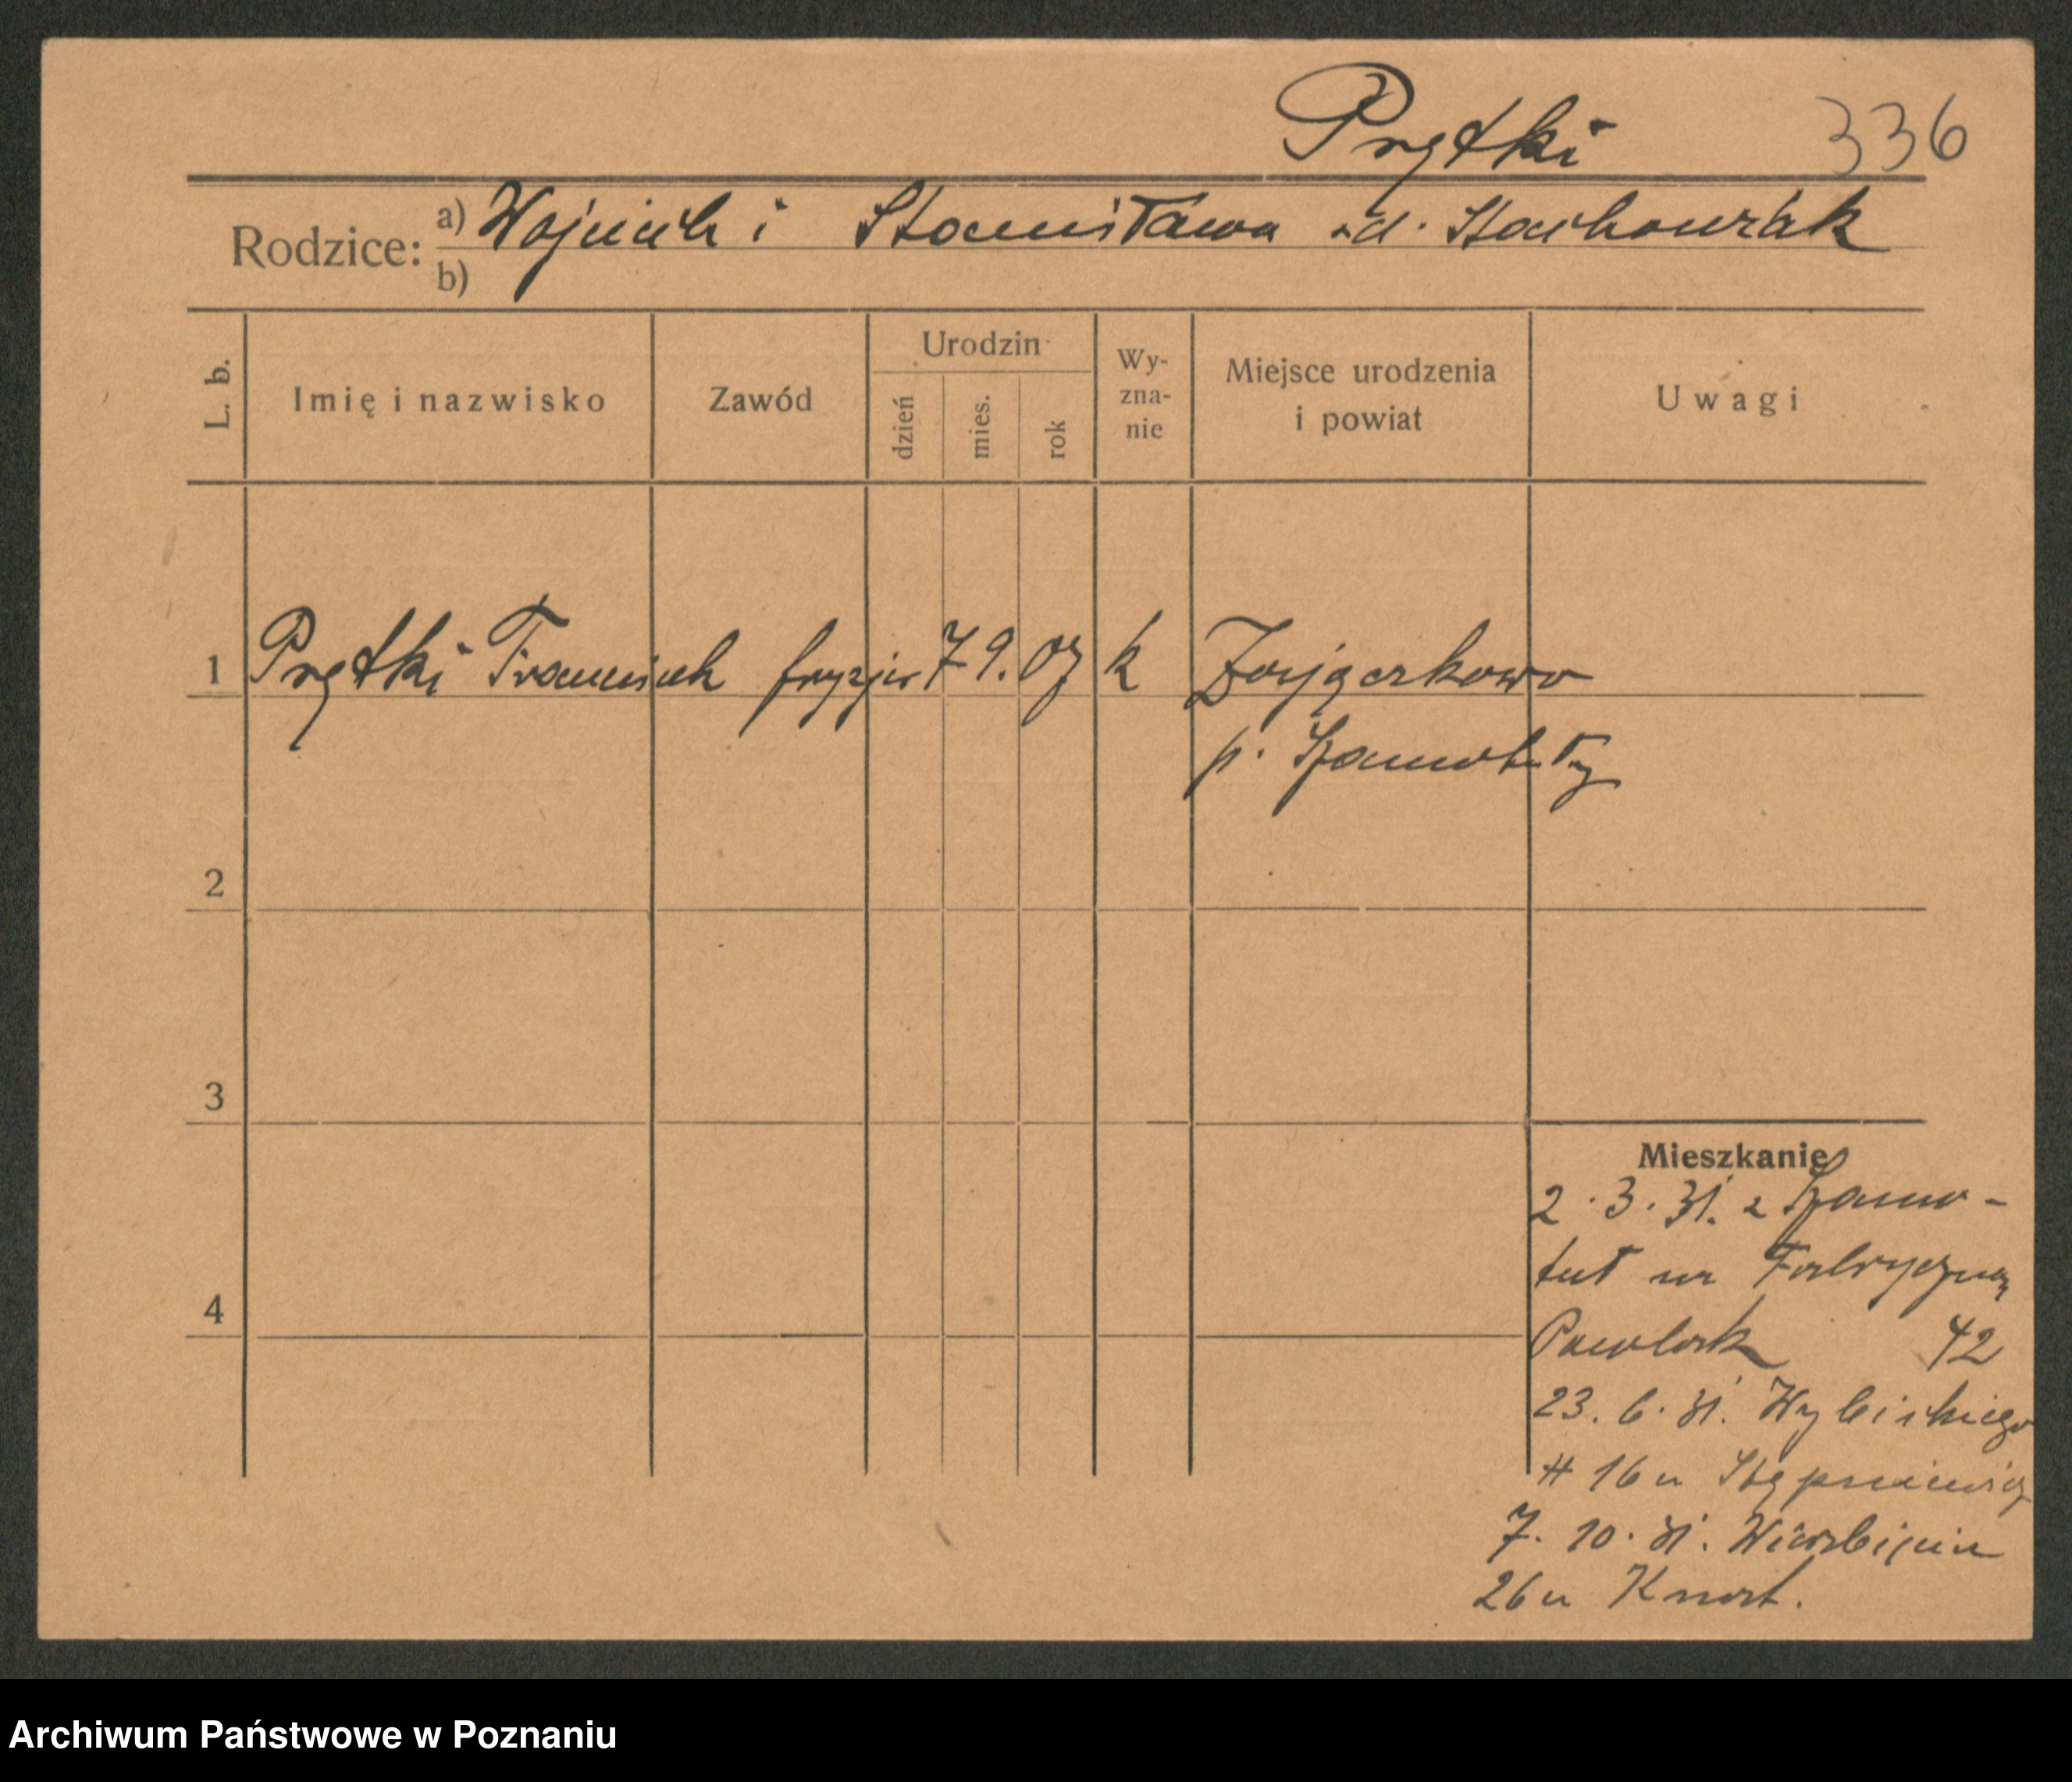 Prętki 336
Rodzice: a) Wojciech i Stanisława z d. Stachowiak
b)
L. b. Imię i nazwisko Zawód Urodzin dzień mies. rok Wy-zna-nie Miejsce urodzenia i powiat Uwagi
1 Prętki Franciszek fryzjer 7 9. 07 k Zajączkowo
p. Szamotuły
2
3
Mieszkanie
2.3.31. z Szamo-
tuł na Fabryczną
4
42
23.6.31. Wybickiego
16 u Stępniewicz
7.10.31. Wierzbięcin
26 u Knast.
Archiwum Państwowe w Poznaniu